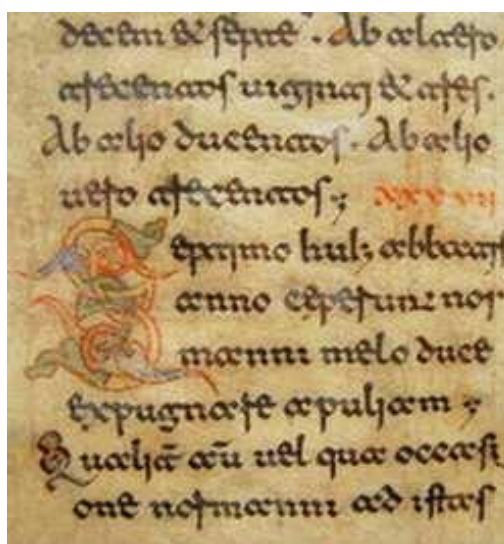 decem & septē . Ab altero
trecentos uiginti & tres .
Ab alio ducentos . Ab alio
uero trecentos ; XXXVII
Septimo hui; abbatis
anno ceperunt nor
manni melo duce
expugnare apuliam ;
Qualit̄ aū uel qua occasi
one normanni ad istas